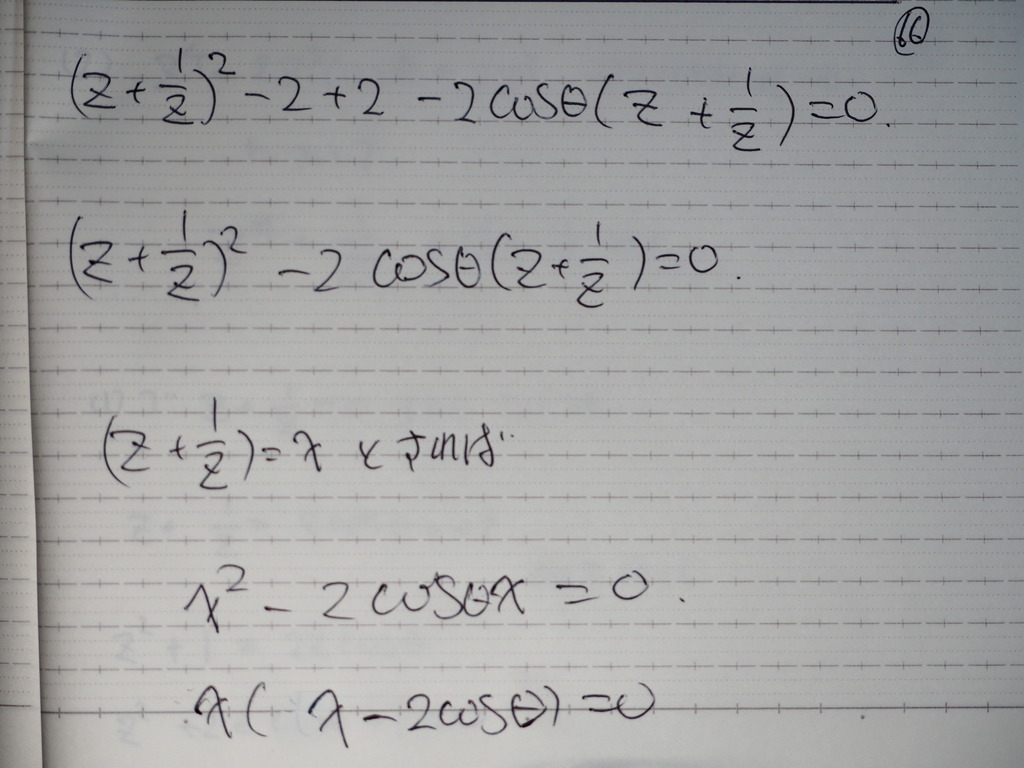 66
(z + 1/z)² - 2 + 2 - 2cosθ(z + 1/z) = 0.
(z + 1/z)² - 2 cosθ(z + 1/z) = 0.
(z + 1/z) = x
x² - 2cosθx = 0.
x(x - 2cosθ) = 0